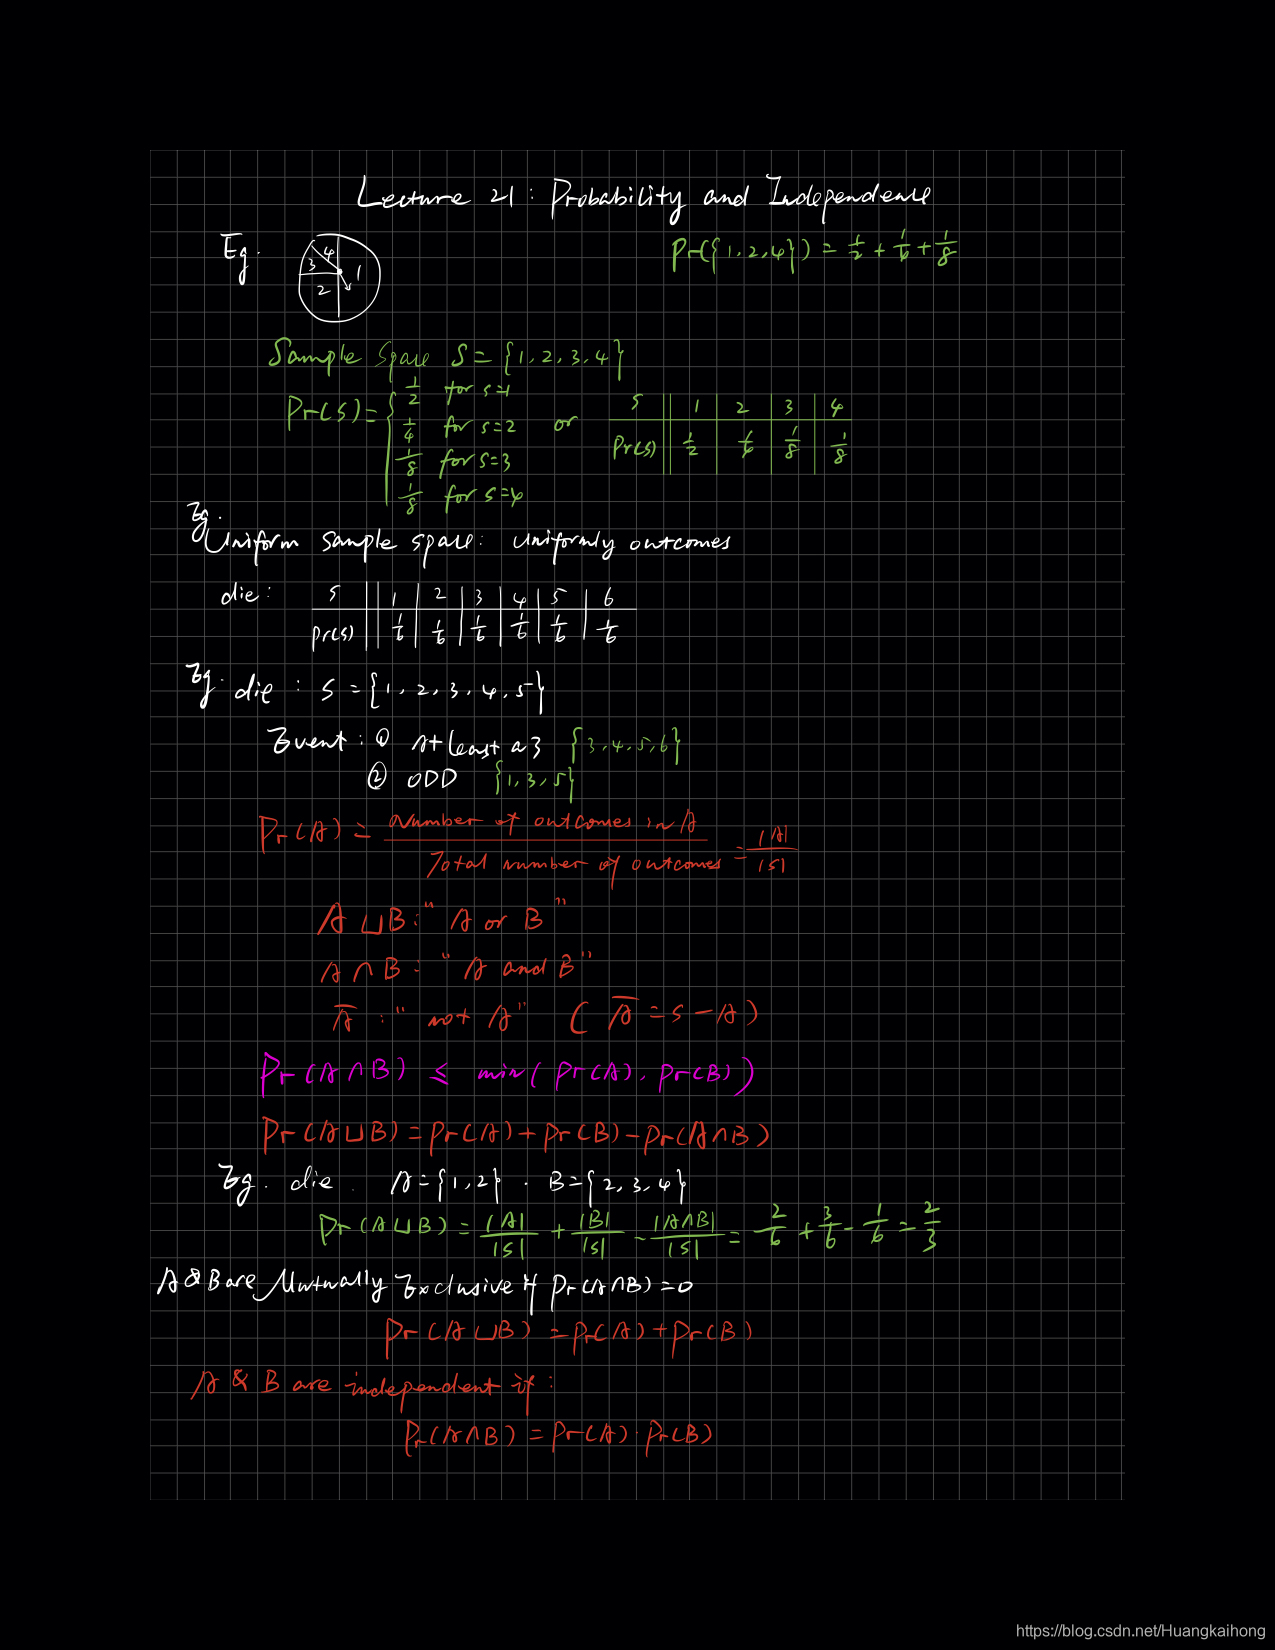 Lecture 21: Probability and Independence
Eg.
Pr({1,2,4}) = 1/2 + 1/6 + 1/8
4
3
1
2
Sample Space S = {1, 2, 3, 4}
Pr(s) = { 1/2 for s=1
1/4 for s=2 or
1/8 for s=3
1/8 for s=4
s 1 2 3 4
Pr(s) 1/2 1/8 1/8
Eg.
Uniform sample space: uniformly outcomes
die: s 1 2 3 4 5 6
Pr(s) 1/6 1/6 1/6 1/6 1/6 1/6
Eg. die : S = {1, 2, 3, 4, 5}
Event: ① At least a 3 {3,4,5,6}
② ODD {1,3,5}
Pr(A) = Number of outcomes in A / Total number of outcomes = |A| / |S|
A ∪ B: "A or B"
A ∩ B: "A and B"
Ā : "not A" ( Ā = S − A )
Pr(A∩B) ≤ min( Pr(A), Pr(B) )
Pr(A∪B) = Pr(A) + Pr(B) − Pr(A∩B)
Eg. die. A = {1,2} . B = {2,3,4}
Pr(A∪B) = |A|/|S| + |B|/|S| − |A∩B|/|S| = 2/6 + 3/6 − 1/6 = 2/3
A & B are Mutually Exclusive if Pr(A∩B) = 0
Pr(A∪B) = Pr(A) + Pr(B)
A & B are independent if:
Pr(A∩B) = Pr(A) · Pr(B)
https://blog.csdn.net/Huangkaihong